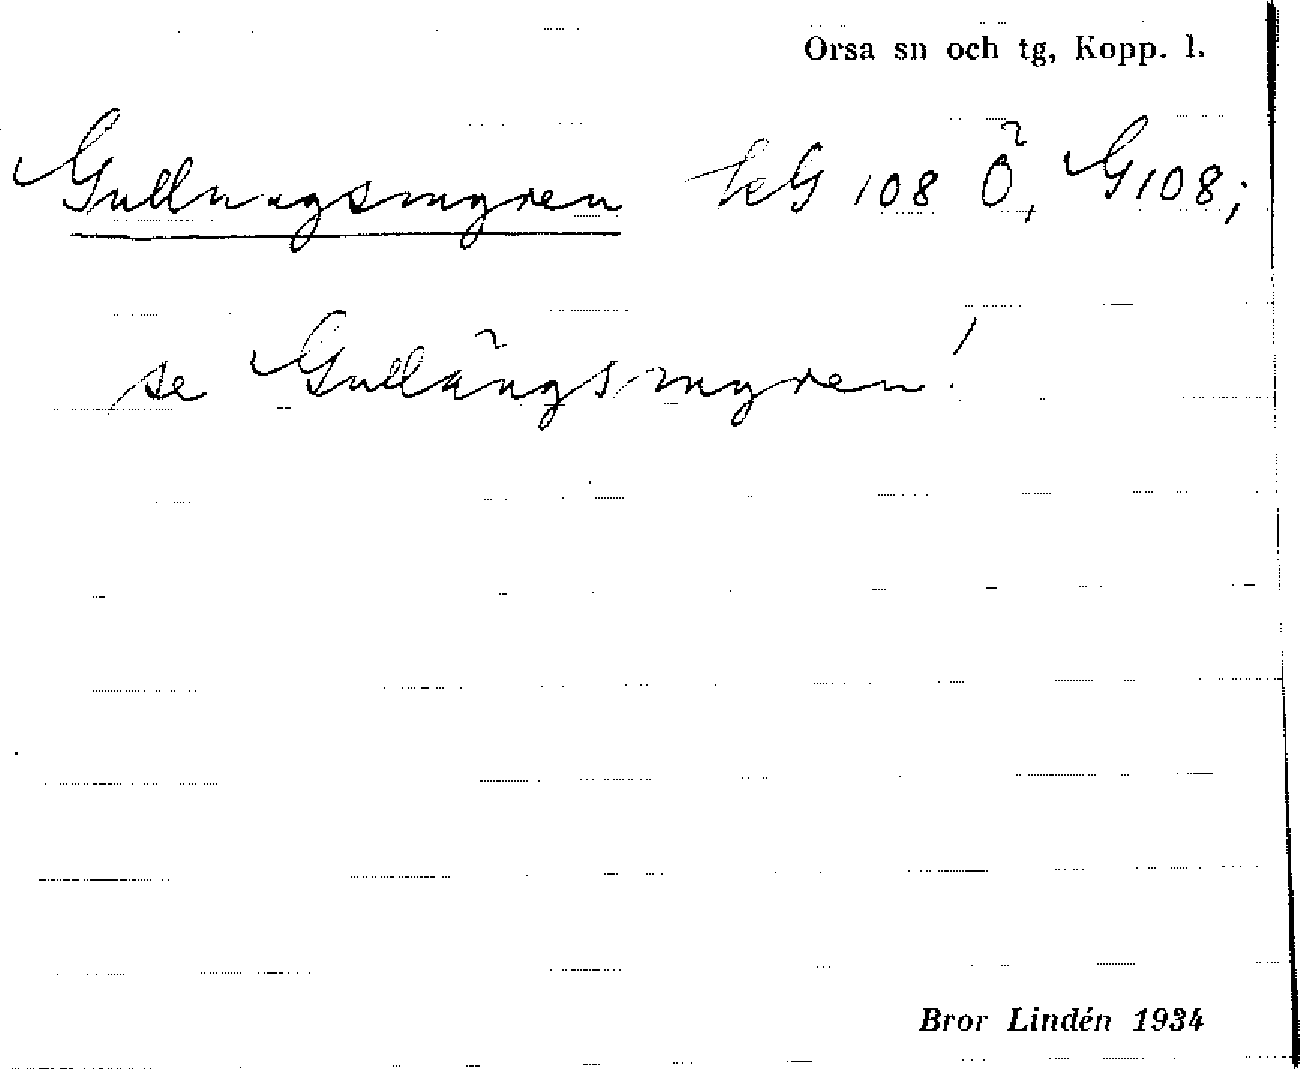 Orsa sn och tg, Kopp. l.
Gullnugsmyren kG 108 Ö, G108;
se Gullängsmyren!
Bror Lindén 1934